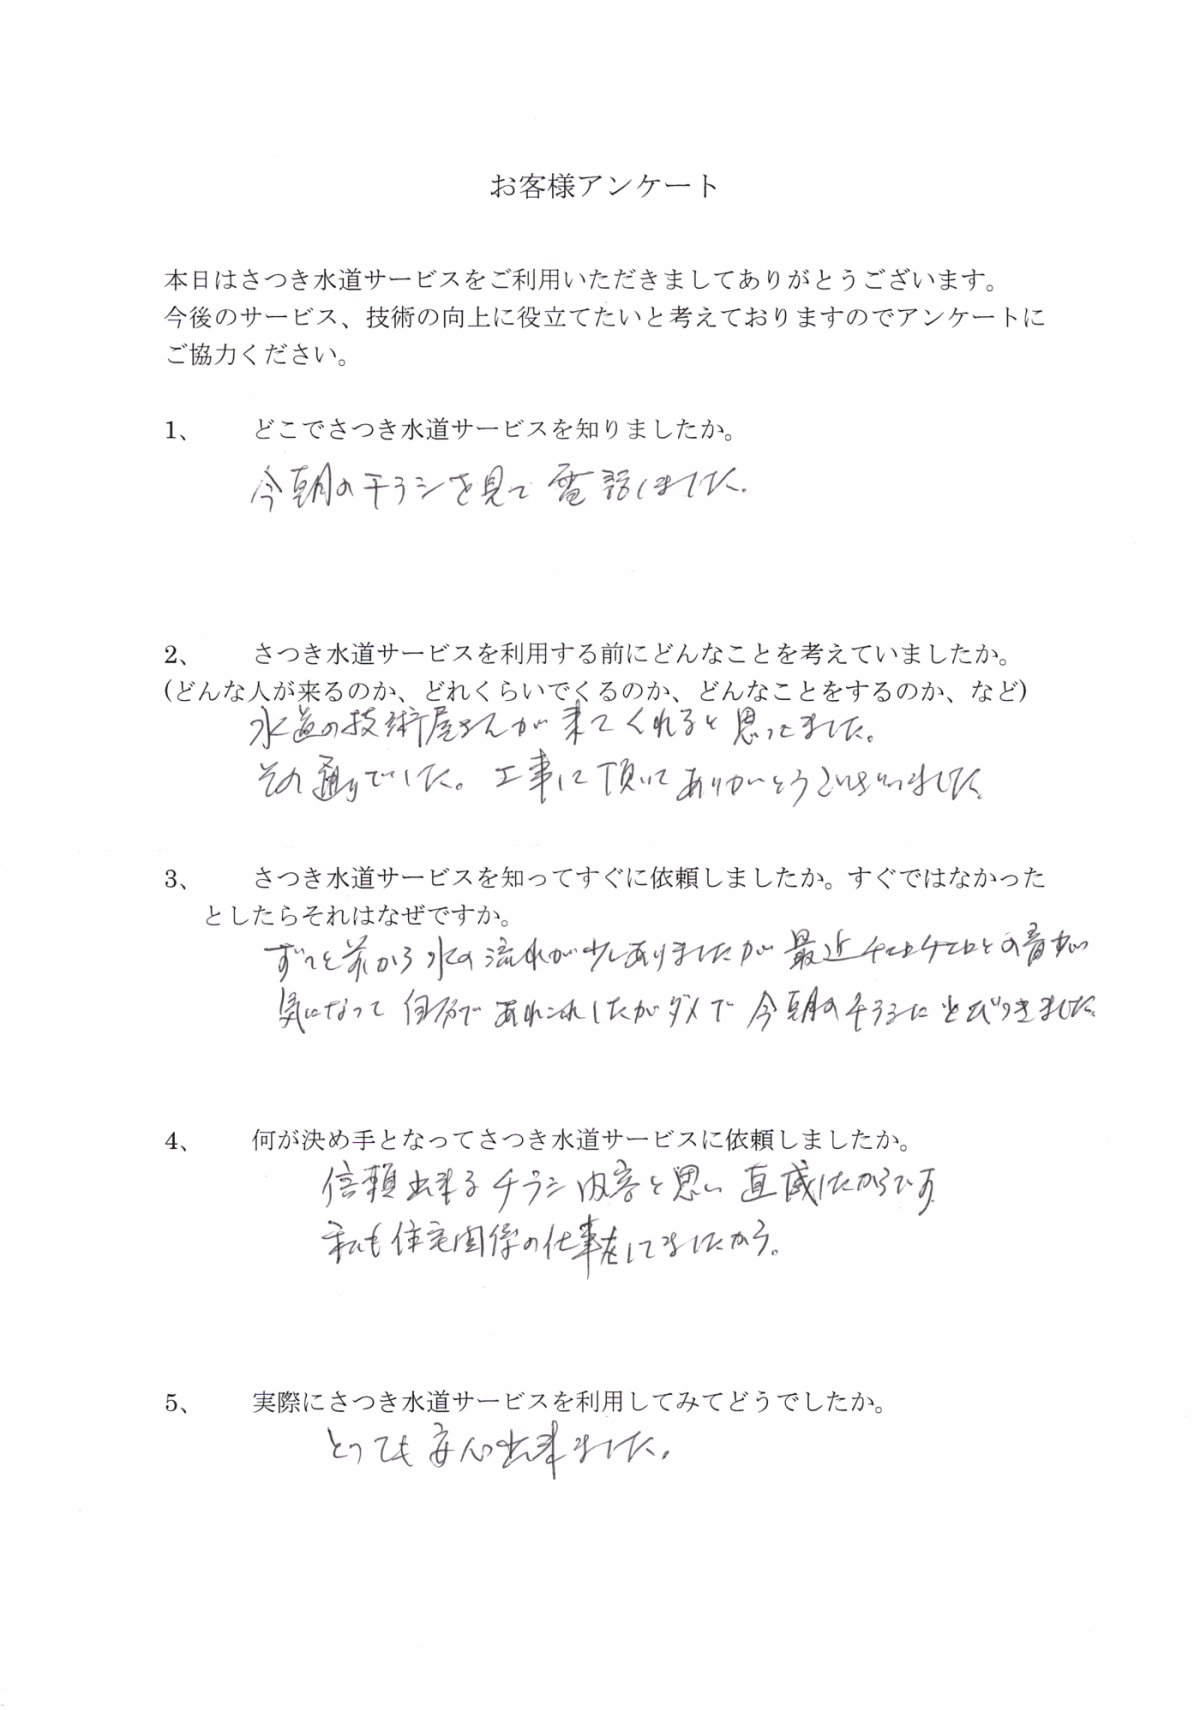 お客様アンケート
本日はさつき水道サービスをご利用いただきましてありがとうございます。
今後のサービス、技術の向上に役立てたいと考えておりますのでアンケートに
ご協力ください。
1、 どこでさつき水道サービスを知りましたか。
今朝のチラシを見て電話しました。
2、 さつき水道サービスを利用する前にどんなことを考えていましたか。
(どんな人が来るのか、どれくらいでくるのか、どんなことをするのか、など)
水道の技術屋さんが来てくれると思ってました。
その通りでした。工事に頂いてありがとうございました
3、 さつき水道サービスを知ってすぐに依頼しましたか。すぐではなかった
としたらそれはなぜですか。
ずっと前から水の流れが少しありましたが最近チョロチョロとの音が
気になって自分であれこれしたがダメで今朝のチラシにとびつきました
4、 何が決め手となってさつき水道サービスに依頼しましたか。
信頼出来るチラシ内容と思い直感したからです
私も住宅関係の仕事をしてましたから。
5、 実際にさつき水道サービスを利用してみてどうでしたか。
とっても安心出来ました。